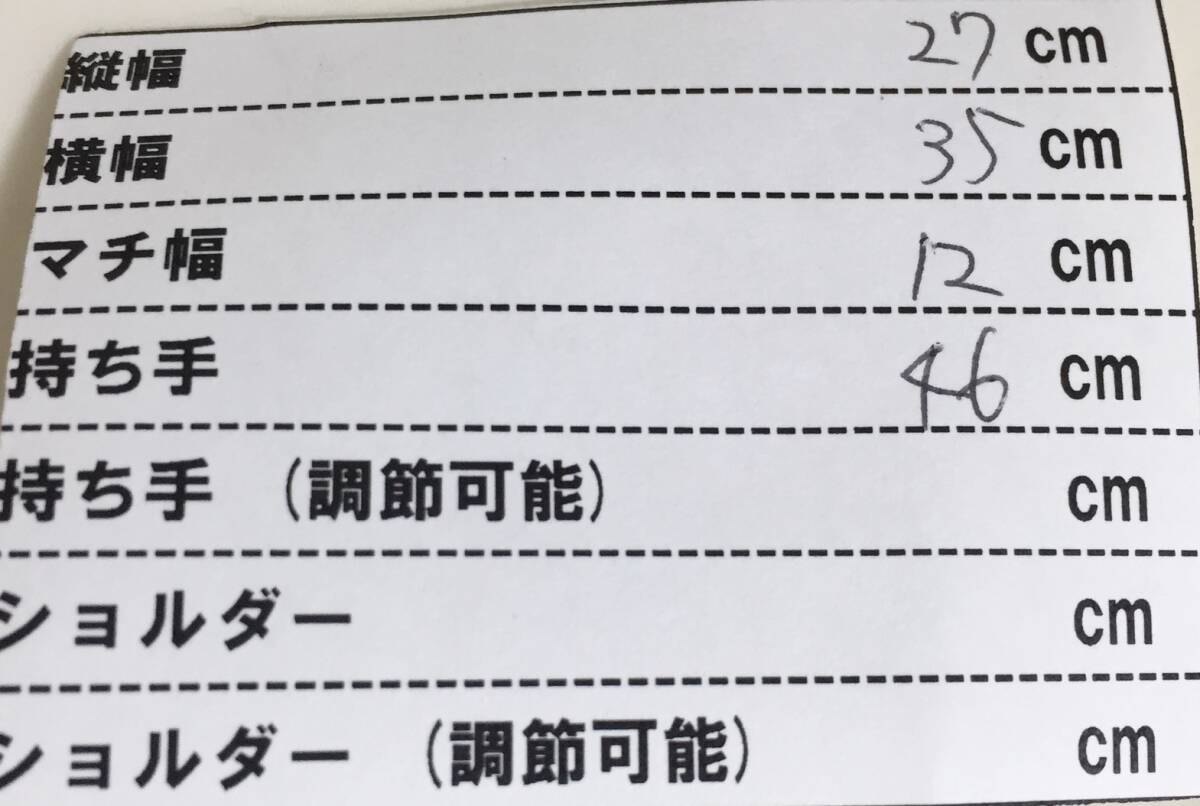 縦幅 27 cm
横幅 35 cm
マチ幅 12 cm
持ち手 46 cm
持ち手 (調節可能) cm
ショルダー cm
ショルダー (調節可能) cm